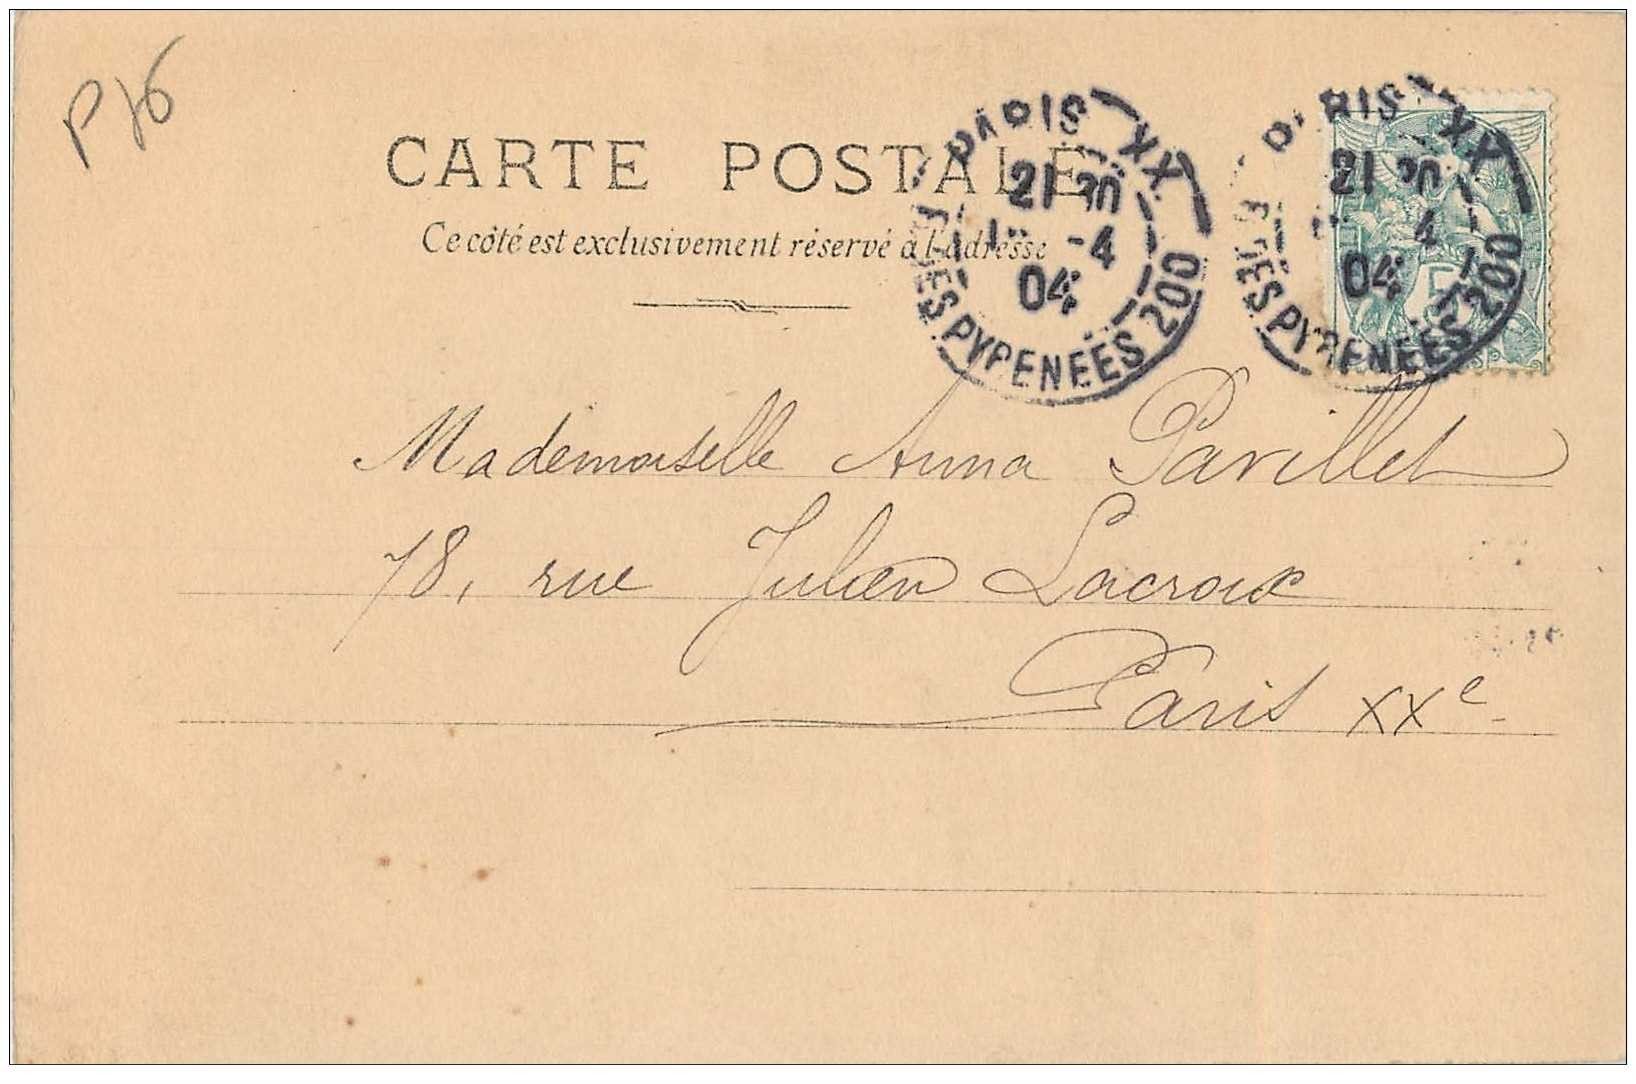 P 76
CARTE POSTALE
Ce côté est exclusivement réservé à l'adresse
PARIS XX
21 30
-4
04
PYRENEES 200
PARIS XX
21 30
4
04
PYRENEES 200
5
Mademoiselle Anna Pavillet
78, rue Julien Lacroix
Paris XXe